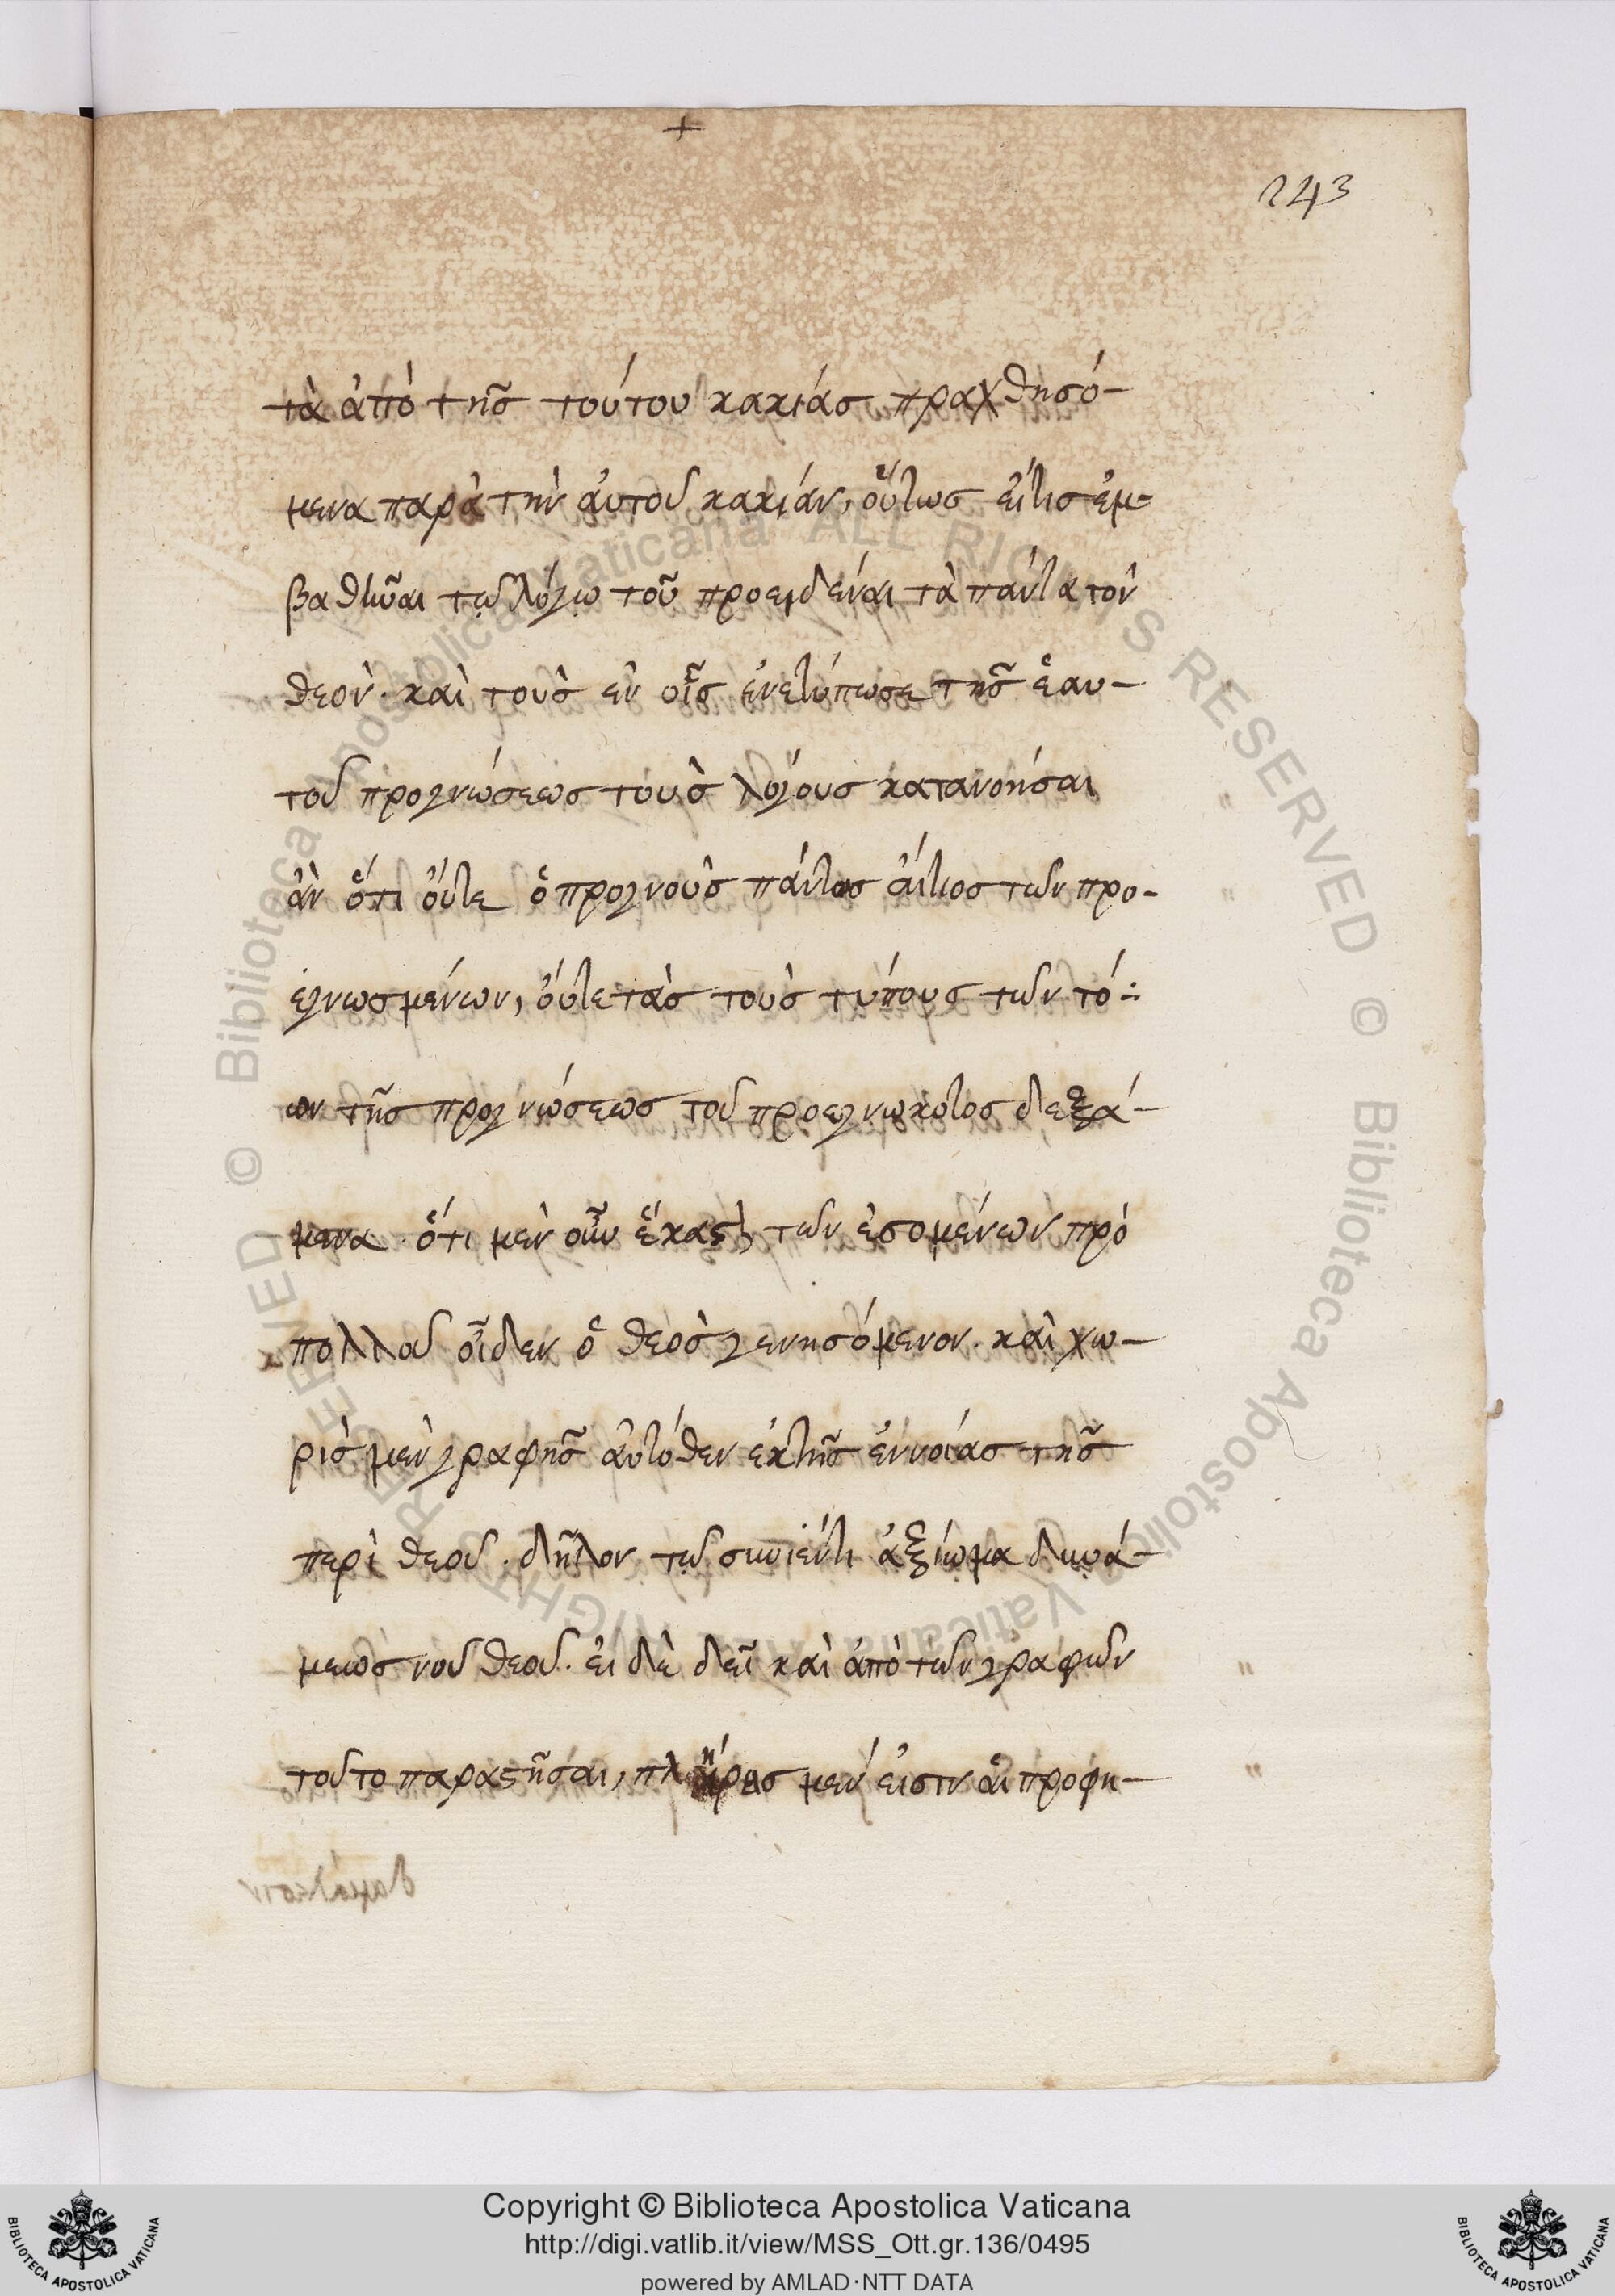 +
243
τὰ ἀπὸ τῆσ τούτου κακίασ πραχθησό-
μενα παρὰ τὴν ἀυτοῦ κακίαν, οὕτωσ ἐίτισ ἐμ-
βαθῦναι τῷ λόγῳ τοῦ προειδέναι τὰ πάντα τὸν
θεόν. καὶ τοὺσ ἐν οἷσ ἐνετύπωσε τῆσ ἑαυ-
τοῦ προγνώσεωσ τοὺσ λόγουσ κατανοήσαι
ἀν ὅτι ὄυτε ὁ προγνοὺσ πάντωσ ἄιτιοσ τῶν προ-
εγνωσμένων, ὄυτε τὰσ τοὺσ τύπουσ τῶν τό-
ων τῆσ προγνώσεωσ τοῦ προεγνωκότοσ δεξά-
μενα. ὅτι μὲν οὖν ἕκαστον τῶν ἐσομένων πρὸ
πολλοῦ οἶδεν ὁ θεὸσ γενησόμενον. καὶ χω-
ρὶσ μὲν γραφῆσ ἀυτόθεν ἐκτῆσ ἐννοίασ τῆσ
περὶ θεοῦ. δῆλον τῷ συνιέντι ἀξίωμα δυνά-
μεωσ νοῦ θεοῦ. ἐι δὲ δεῖ καὶ ἀπὸ τῶν γραφῶν
τοῦτο παραστῆσαι, πλήρεισ μέν ἐισιν ἁι προφη-
Copyright © Biblioteca Apostolica Vaticana
http://digi.vatlib.it/view/MSS_Ott.gr.136/0495
powered by AMLAD·NTT DATA
BIBLIOTECA APOSTOLICA VATICANA
BIBLIOTECA APOSTOLICA VATICANA
© Biblioteca Apostolica Vaticana ALL RIGHTS RESERVED © Biblioteca Apostolica Vaticana ALL RIGHTS RESERVED